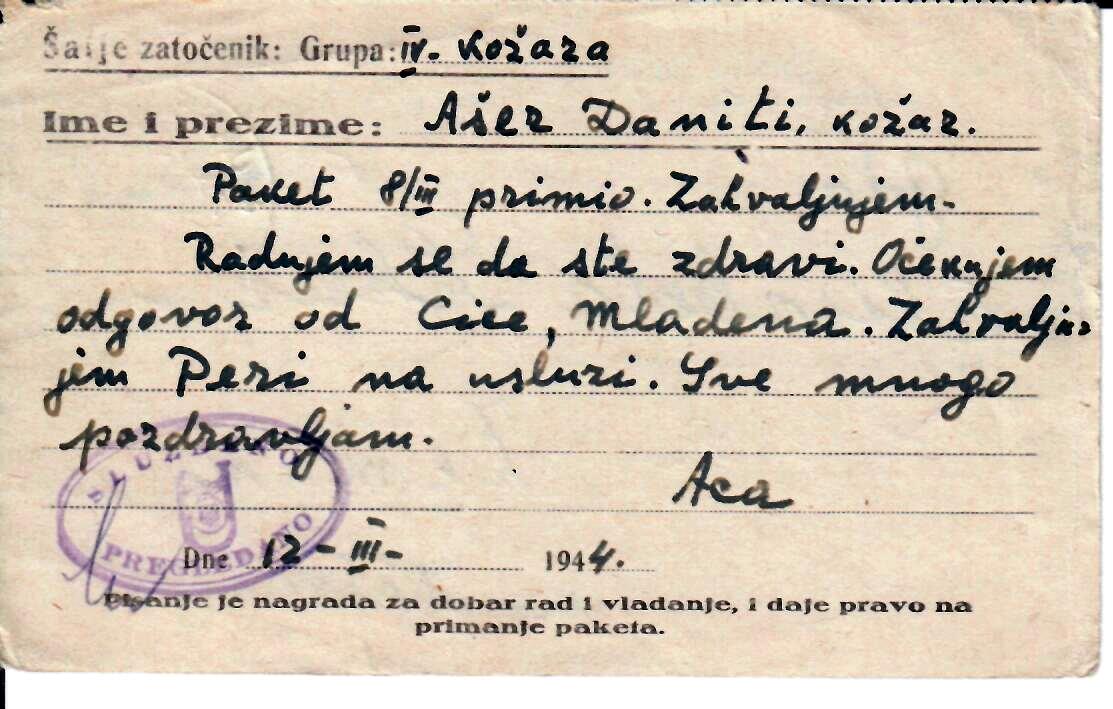 Šalje zatočenik: Grupa: IV. kožara
Ime i prezime: Ašer Daniti, kožar.
Paket 8/III primio. Zahvaljujem.
Radujem se da ste zdravi. Očekujem
odgovor od Cice, Mladena. Zahvalju-
jem Peri na usluzi. Sve mnogo
pozdravljam.
Aca
SLUŽBENO
PREGLEDANO
Dne 12-III- 1944.
Pisanje je nagrada za dobar rad i vladanje, i daje pravo na
primanje paketa.